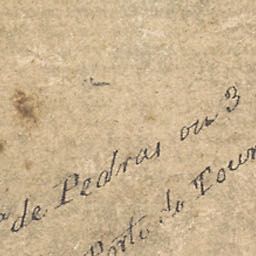 de Pedras ou 3
Porto do Tour